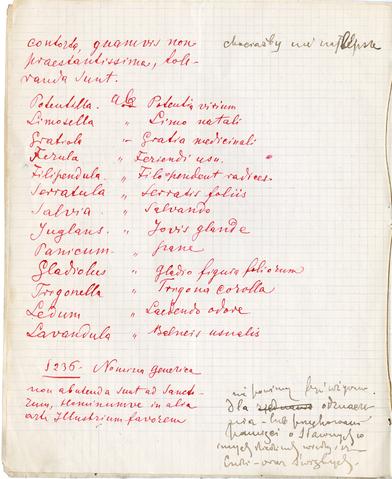 contorta, quamvis non
praestantissima, tole-
randa sunt.
chociażby nie najlepsze
Potentilla. a Potentia virium
Limosella „ Limo natali
Gratiola „ Gratia medicinali
Ferula „ Feriendi usu.
Filipendula „ Filo pendent radices.
Serratula „ Serratis foliis
Salvia „ Salvando
Juglans „ Jovis glande
Panicum „ pane
Gladiolus „ Gladio figura foliorum
Trigonella „ Trigona corolla
Ledum „ Laedendo odore
Lavandula „ Balneis usualis
§236. Nomina generica
non abutenda sunt ad Sancto-
rum, Hominumve in alia
arte Illustrium favorem
nie powinny być używane
dla
lub
i o sławnych